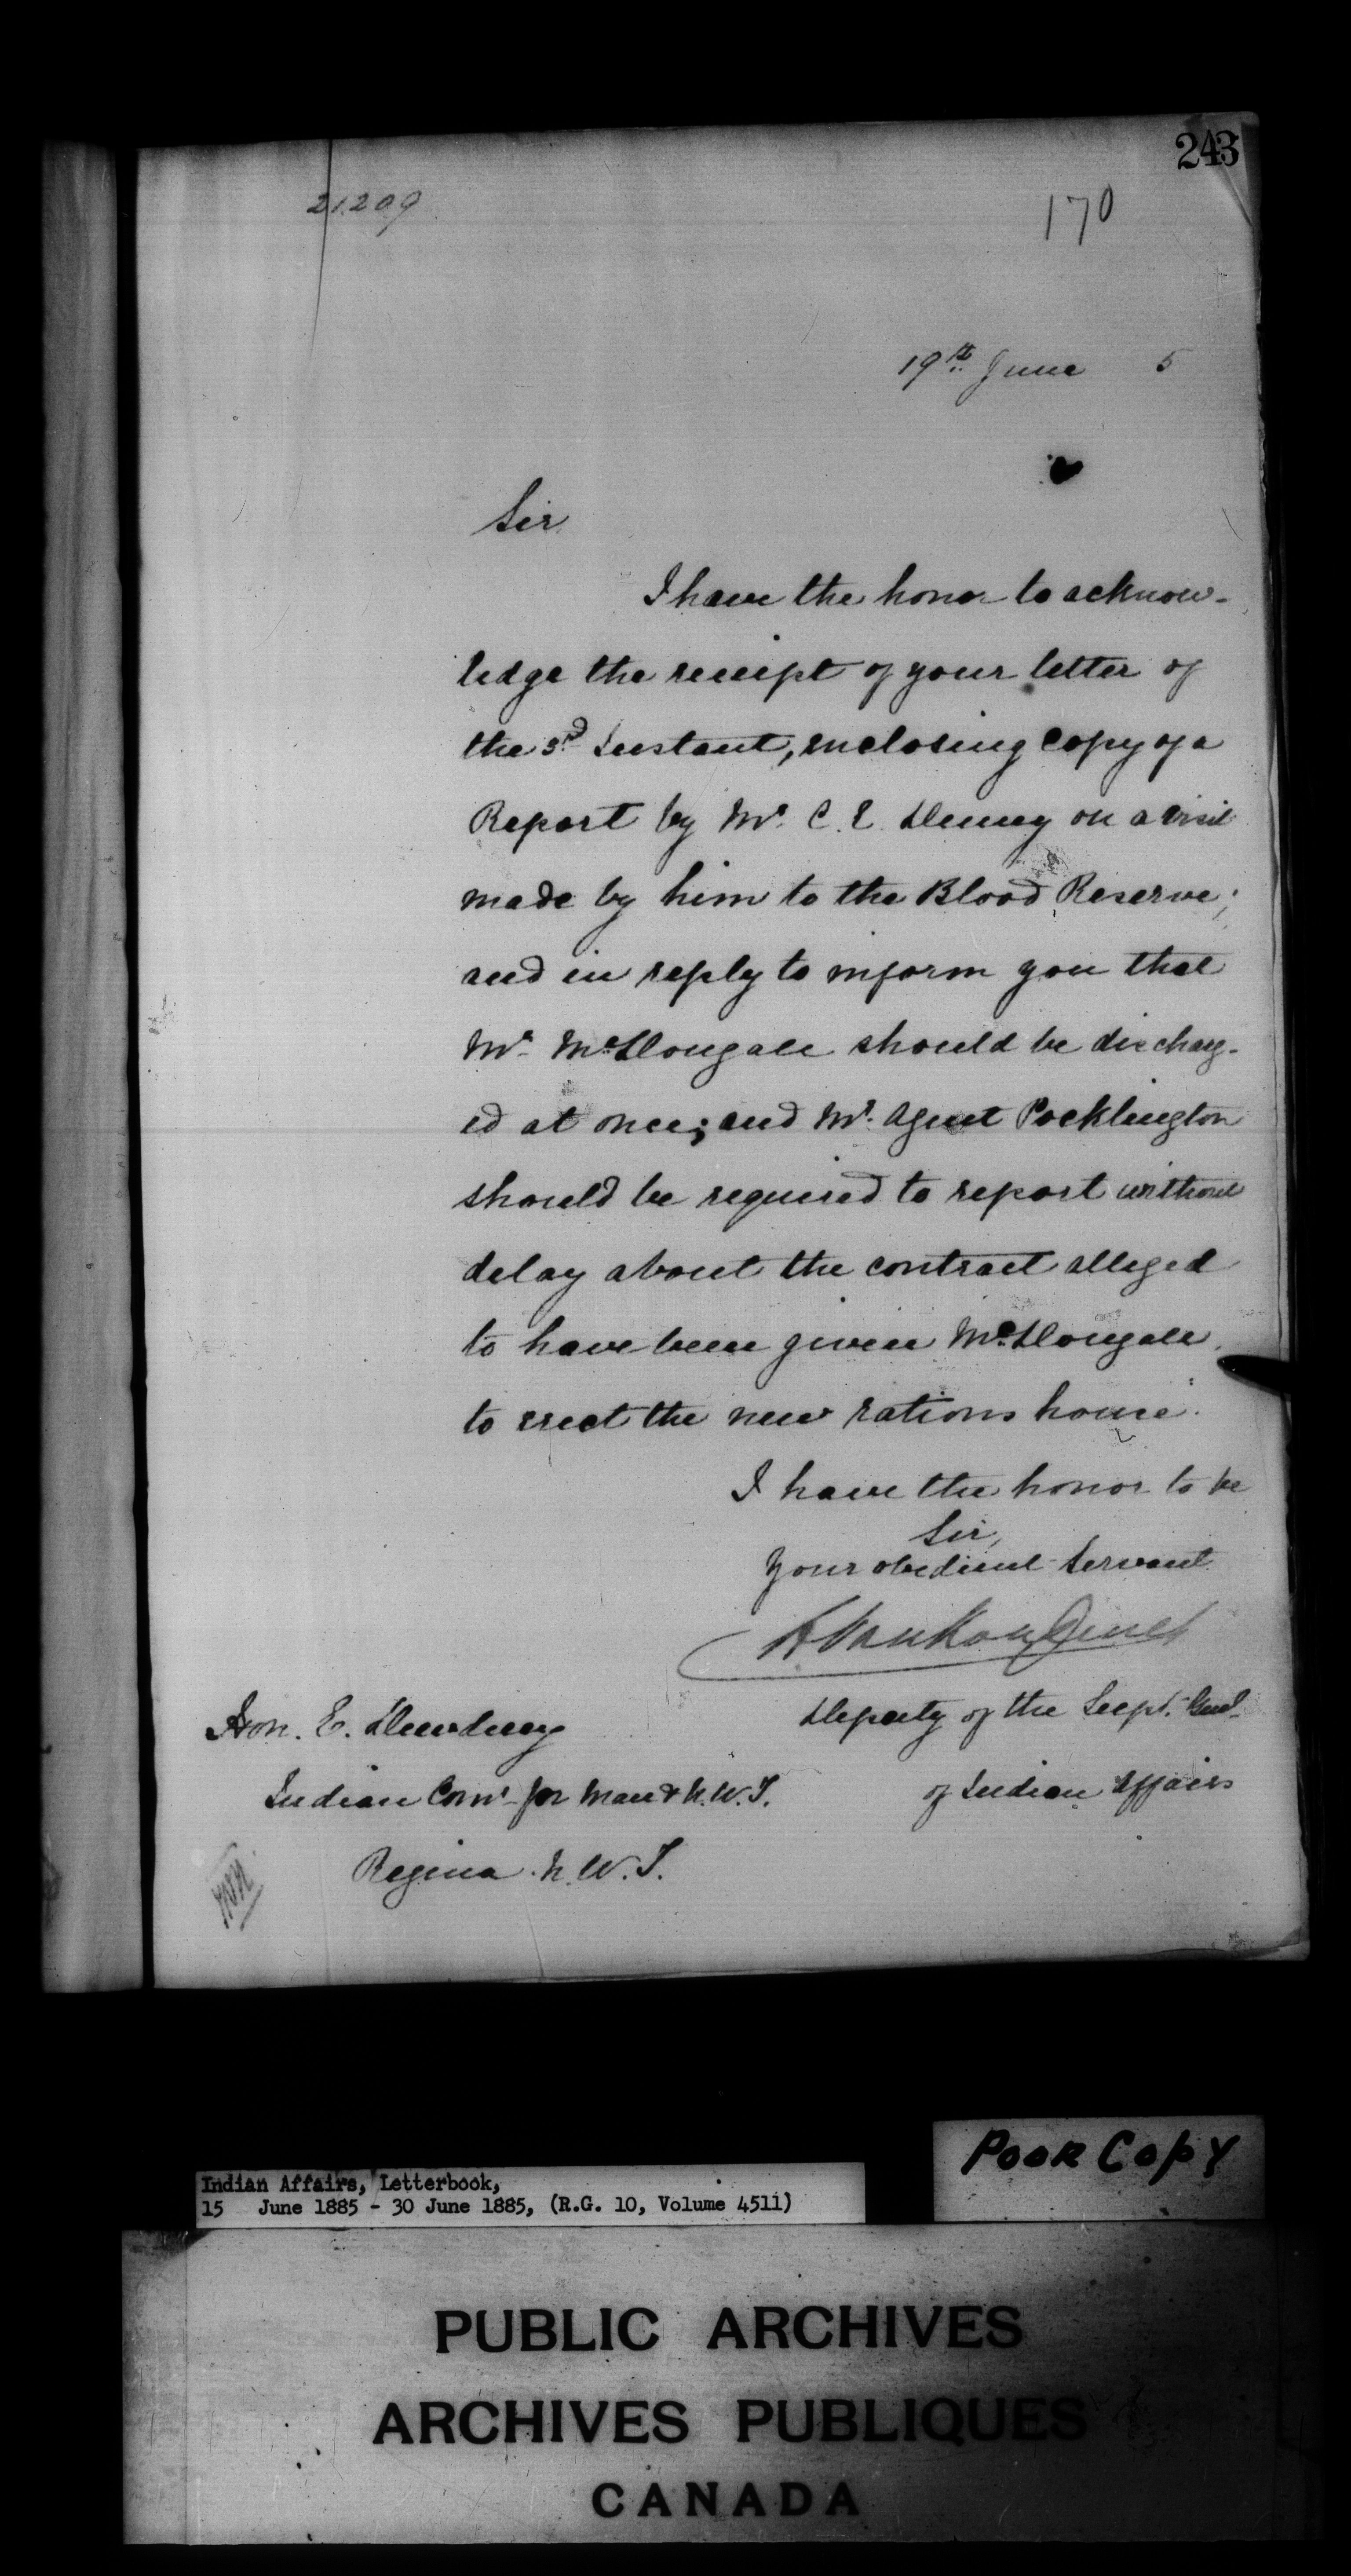 243
21.209
170
19th June 5
Sir
I have the honor to acknow-
ledge the receipt of your letter of
the 3rd Instant, enclosing Copy of a
Report by Mr. C. E. Denny on a visit
made by him to the Blood Reserve;
and in reply to inform you that
Mr. McDougall should be discharg-
ed at once; and Mr. Agent Pocklington
should be required to report without
delay about the contract alleged
to have been given McDougall
to erect the new rations house.
I have the honor to be
Sir,
Your obedient Servant
L Vankoughnet
Deputy of the Supt. Genl.
of Indian Affairs
Hon. E. Dewdney
Indian Comr for Man & N.W.T.
Regina. N.W.T.
Poor Copy
Indian Affairs, Letterbook,
15 June 1885 - 30 June 1885, (R.G. 10, Volume 4511)
PUBLIC ARCHIVES
ARCHIVES PUBLIQUES
CANADA